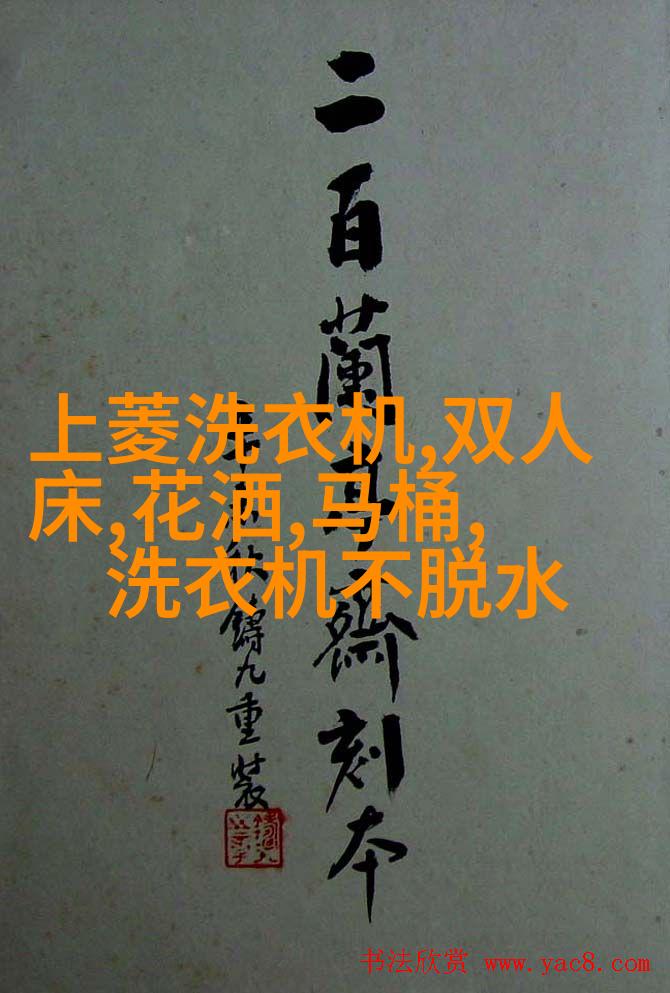 二百蘭亭齋刻本
鑄九重裝
上菱洗衣机,双人
床,花洒,马桶,
洗衣机不脱水
书法欣赏 www.yac8.com